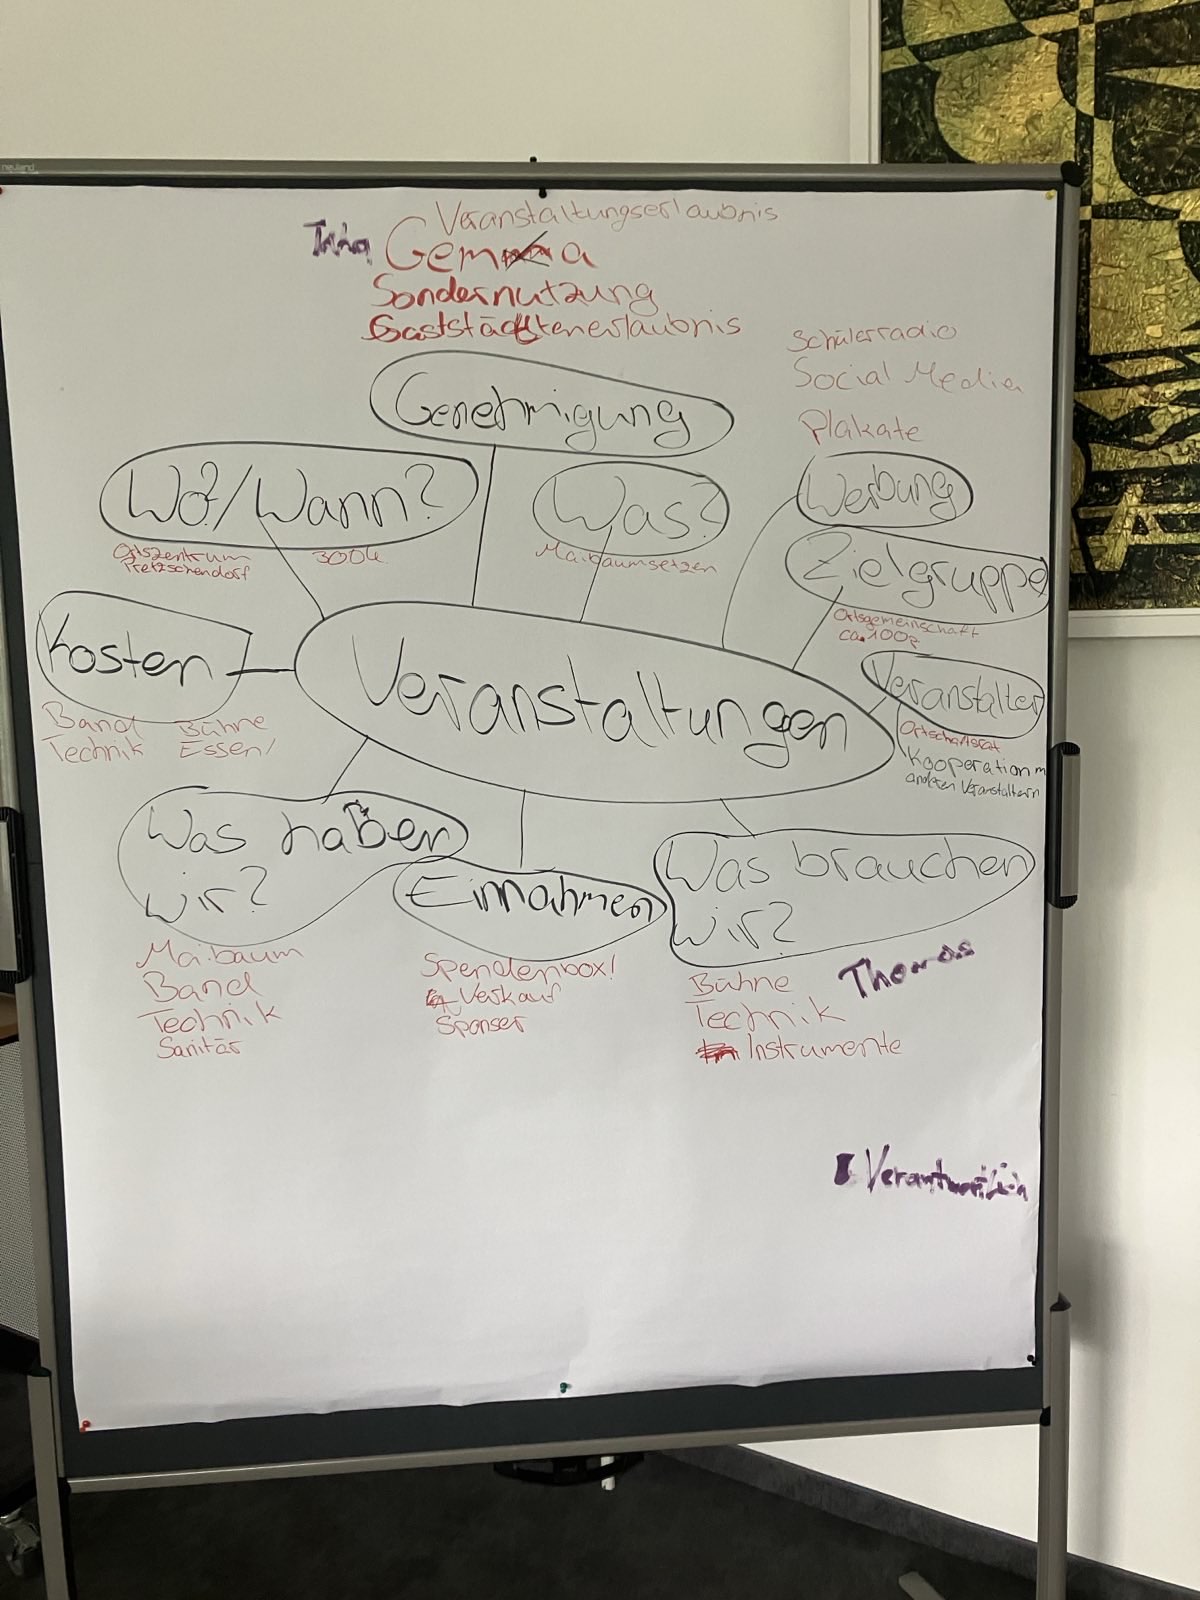 neuland
Veranstaltungserlaubnis
Gema
Sondernutzung
Gaststättenerlaubnis
Genehmigung
Schülerradio
Social Media
Plakate
Werbung
Wo?/Wann?
Ortszentrum
Pretzschendorf
30.04.
Was?
Maibaumsetzen
Zielgruppe
Ortsgemeinschaft
ca. 100P
Kosten
Band Bühne
Technik Essen/
Veranstaltungen
Veranstalter
Ortschaftsrat
Kooperation m
anderen Veranstaltern
Was haben
wir?
Maibaum
Band
Technik
Sanitär
Einnahmen
Spendenbox!
Verkauf
Sponser
Was brauchen
wir?
Thomas
Bühne
Technik
Instrumente